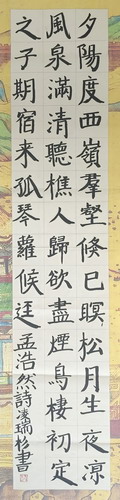 夕陽度西嶺羣壑倐已暝松月生夜凉
風泉滿清聽樵人歸欲盡煙鳥棲初定
之子期宿来孤琴蘿候迳孟浩然詩凌瑞杉書